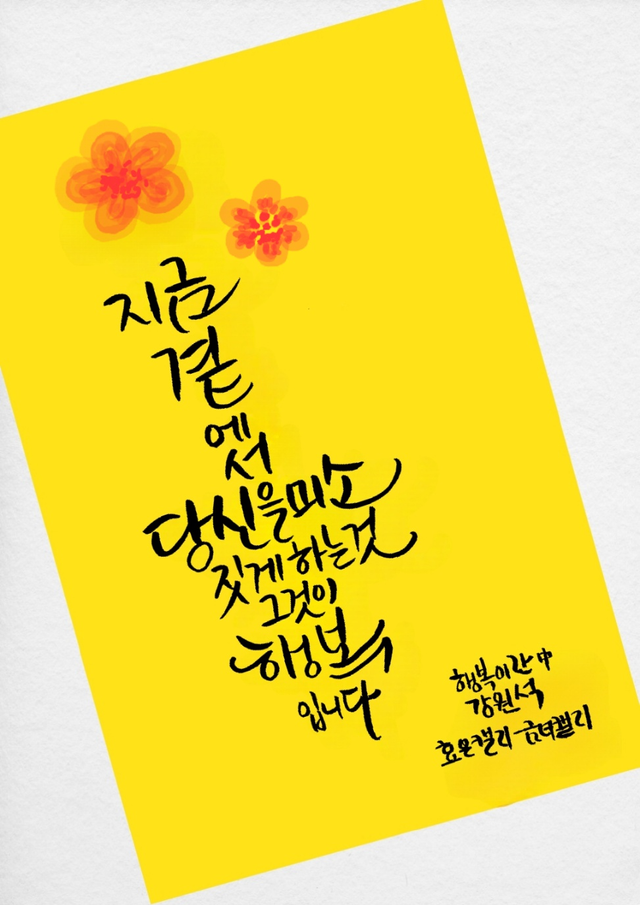 지금
곁
에서
당신을미소
짓게 하는것
그것이
행복
입니다
행복이란 中
강원석
효온캘리-금녀캘리